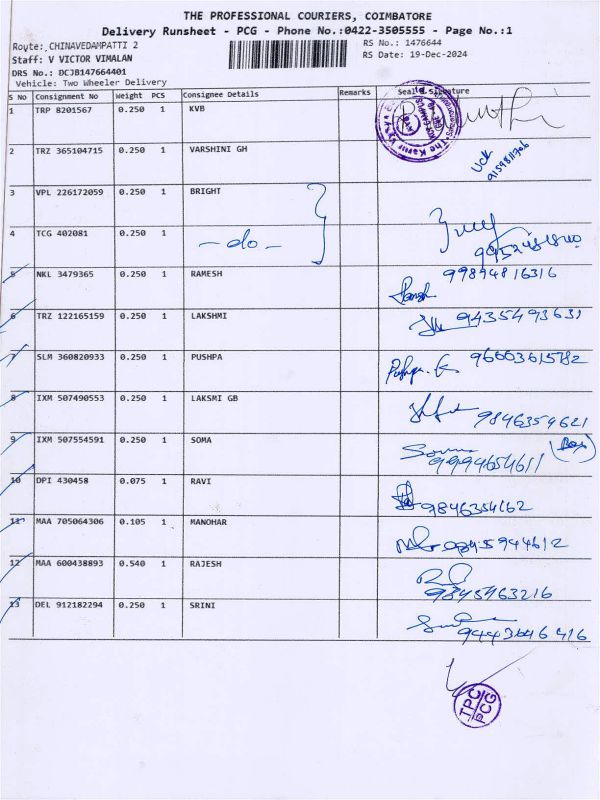 THE PROFESSIONAL COURIERS, COIMBATORE
Delivery Runsheet - PCG - Phone No.:0422-3505555 - Page No.:1
Royte: CHINAVEDAMPATTI 2
RS No.: 1476644
Staff: V VICTOR VIMALAN
RS Date: 19-Dec-2024
DRS No.: DCJB147664401
Vehicle: Two Wheeler Delivery
S No Consignment No Weight PCS Consignee Details Remarks Seal & Signature
1 TRP 8201567 0.250 1 KVB
2 TRZ 365104715 0.250 1 VARSHINI GH
3 VPL 226172059 0.250 1 BRIGHT
4 TCG 402081 0.250 1 -do-
5 NKL 3479365 0.250 1 RAMESH 99894816316
6 TRZ 122165159 0.250 1 LAKSHMI 9435493631
7 SLM 360820933 0.250 1 PUSHPA Pushpa. G
8 IXM 507490553 0.250 1 LAKSMI GB 9846354621
9 IXM 507554591 0.250 1 SOMA Soma 9994654611
10 DPI 430458 0.075 1 RAVI 9846354162
11 MAA 705064306 0.105 1 MANOHAR 9845944612
12 MAA 600438893 0.540 1 RAJESH 9845463216
13 DEL 912182294 0.250 1 SRINI 9443646416
TPC
PCG